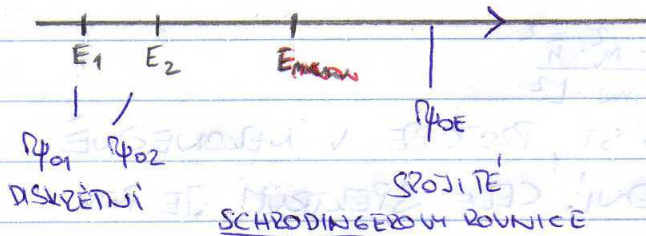 E₁ E₂ E
ψ₀₁ ψ₀₂ ψ₀E
DISKRÉTNÍ SPOJITÉ
SCHRODINGEROVY ROVNICE